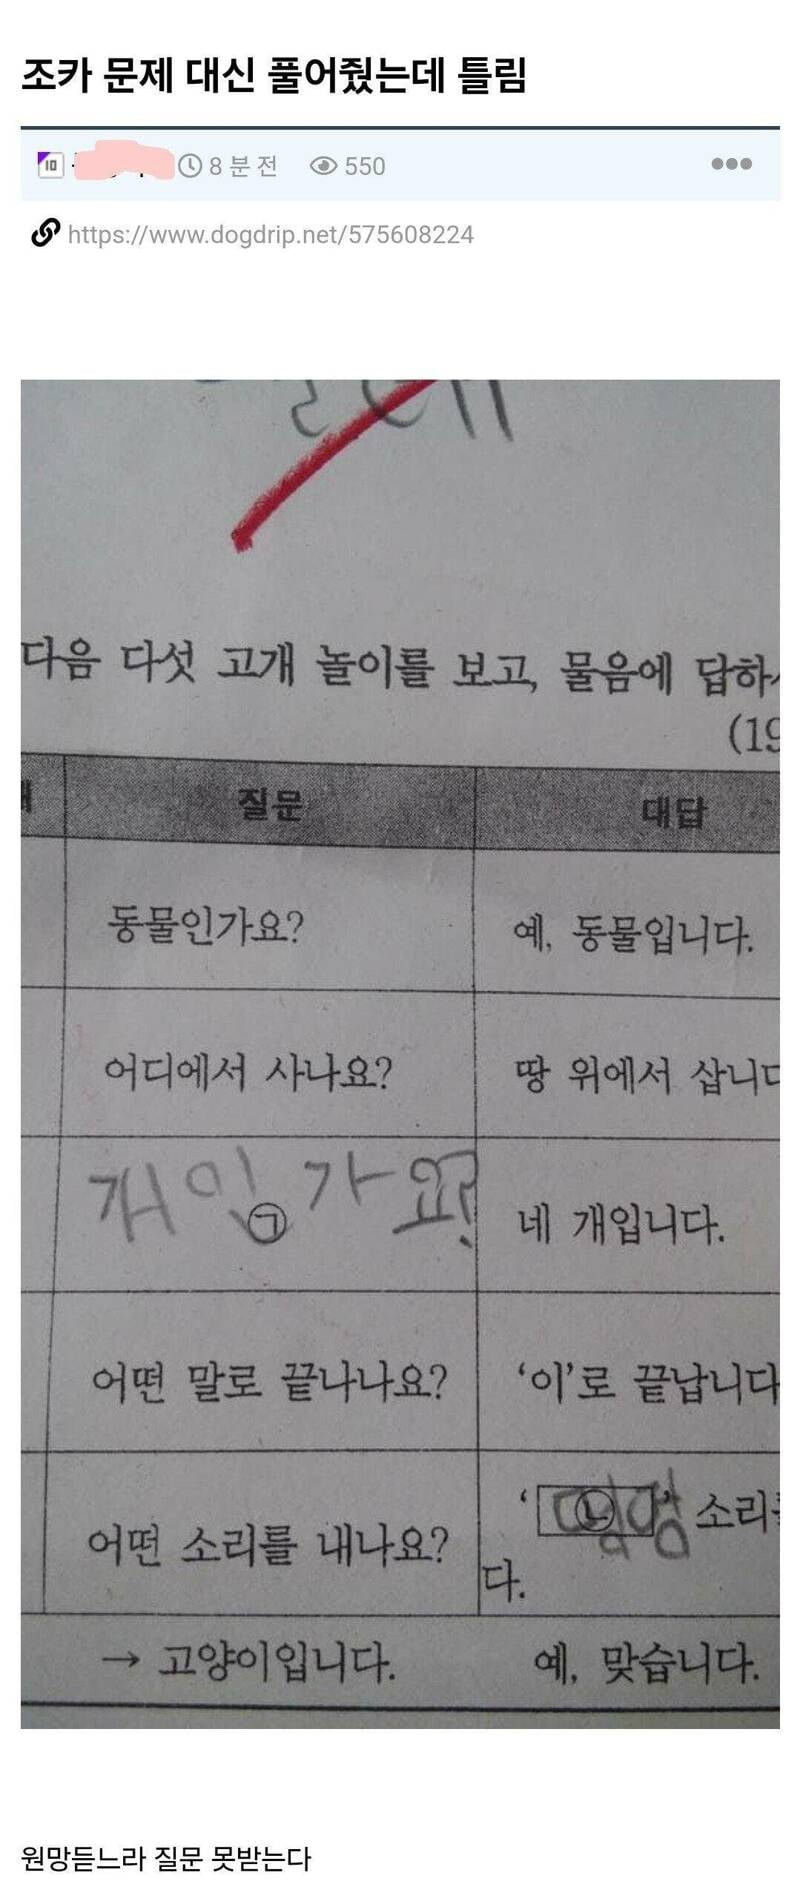 조카 문제 대신 풀어줬는데 틀림
8 분 전 550
https://www.dogdrip.net/575608224
다음 다섯 고개 놀이를 보고, 물음에 답하
(19
질문 대답
동물인가요? 예, 동물입니다.
어디에서 사나요? 땅 위에서 삽니다
개인가요? ㉠ 네 개입니다.
어떤 말로 끝나나요? ‘이’로 끝납니다
어떤 소리를 내나요? ‘ ㉡ ’ 소리를
다.
→ 고양이입니다. 예, 맞습니다.
원망듣느라 질문 못받는다